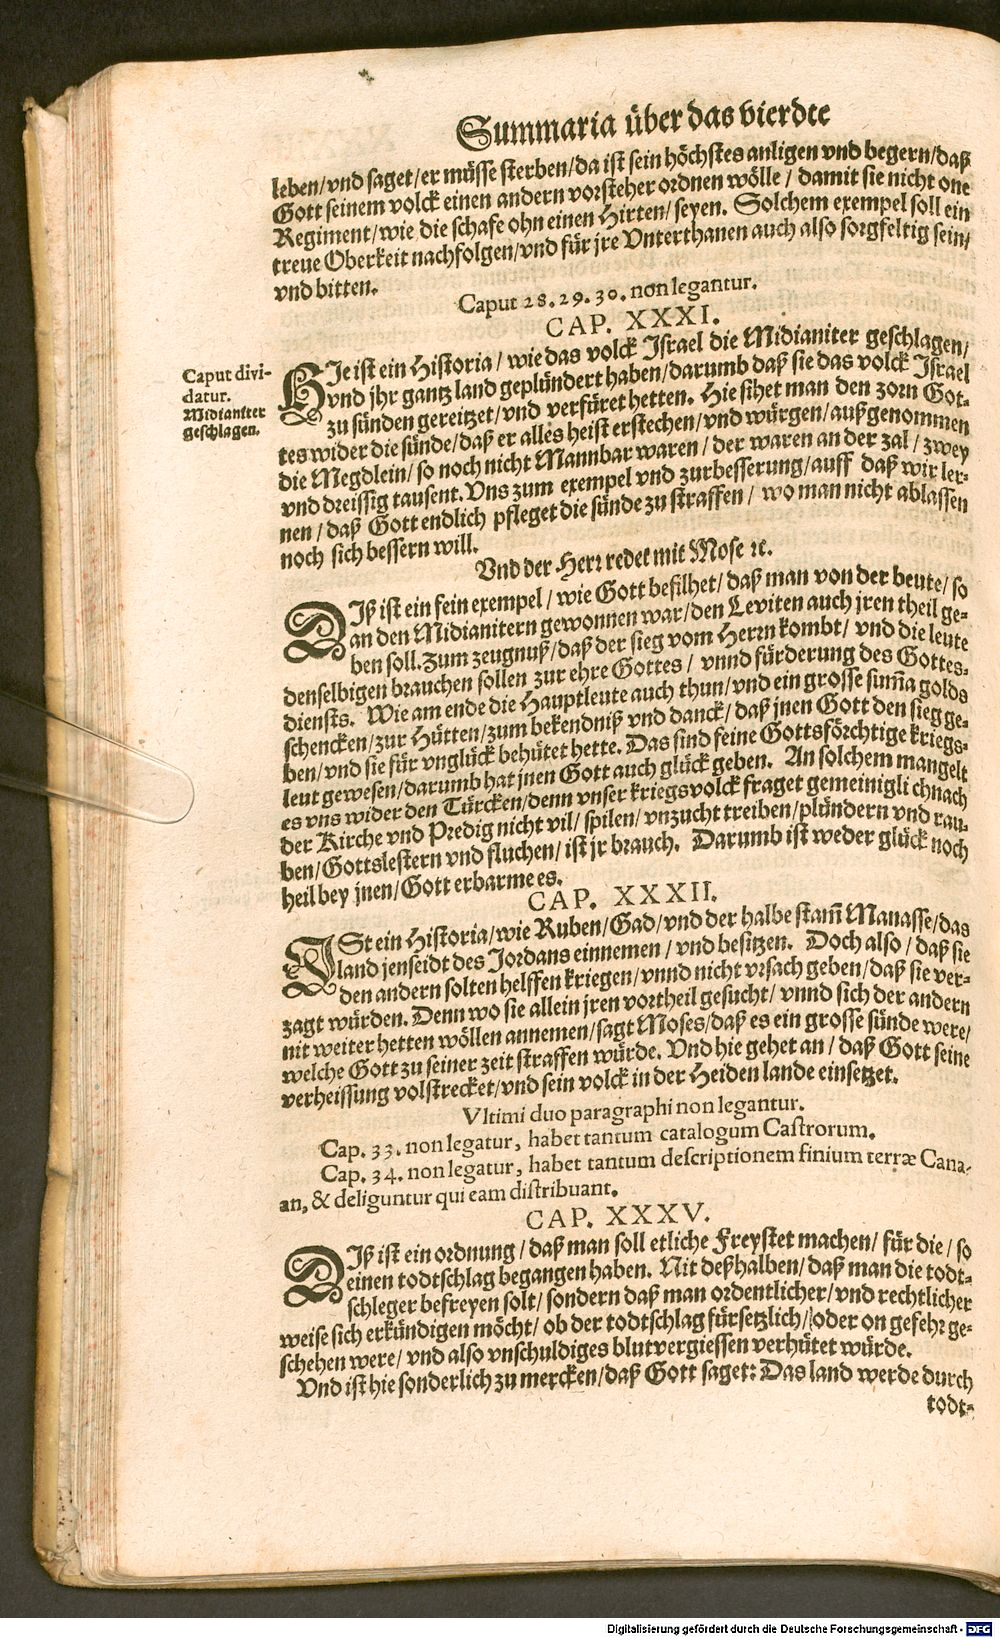 Summaria über das vierdte
leben/vnd saget/er müsse sterben/da ist sein höchstes anligen vnd begern/daß
Gott seinem volck einen andern vorsteher ordnen wölle / damit sie nicht one
Regiment/wie die schafe ohn einen Hirten/seyen. Solchem exempel soll ein
treue Oberkeit nachfolgen/vnd für jre Vnterthanen auch also sorgfeltig sein/
vnd bitten.
Caput 28. 29. 30. non legantur.
CAP. XXXI.
Caput divi-
datur.
Midianiter
geschlagen.
HJe ist ein Historia / wie das volck Israel die Midianiter geschlagen/
vnd jhr gantz land geplündert haben/darumb daß sie das volck Israel
zu sünden gereitzet/vnd verfüret hetten. Hie sihet man den zorn Got-
tes wider die sünde/daß er alles heist erstechen/vnd würgen/außgenommen
die Megdlein/so noch nicht Mannbar waren / der waren an der zal / zwey
vnd dreissig tausent. Vns zum exempel vnd zur besserung/auff daß wir ler-
nen / daß Gott endlich pfleget die sünde zu straffen / wo man nicht ablassen
noch sich bessern will.
Vnd der Herr redet mit Mose ꝛc.
DJß ist ein fein exempel / wie Gott befilhet/daß man von der beute/so
an den Midianitern gewonnen war/den Leviten auch jren theil ge-
ben soll. Zum zeugnuß/daß der sieg vom Herrn kombt/ vnd die leute
denselbigen brauchen sollen zur ehre Gottes / vnnd fürderung des Gottes-
diensts. Wie am ende die Hauptleute auch thun/vnd ein grosse sum̃a golds
schencken/zur Hütten/zum bekendniß vnd danck/daß jnen Gott den sieg ge-
ben/vnd sie für vnglück behütet hette. Das sind feine Gottsförchtige kriegs-
leut gewesen/darumb hat jnen Gott auch glück geben. An solchem mangelt
es vns wider den Türcken/denn vnser kriegsvolck fraget gemeinigli chnach
der Kirche vnd Predig nicht vil/ spilen/vnzucht treiben/plündern vnd rau-
ben/Gottslestern vnd fluchen/ ist jr brauch. Darumb ist weder glück noch
heil bey jnen/Gott erbarme es.
CAP. XXXII.
JSt ein Historia/wie Ruben/Gad/vnd der halbe stam̃ Manasse/das
land jenseidt des Jordans einnemen / vnd besitzen. Doch also / daß sie
den andern solten helffen kriegen/vnnd nicht vrsach geben/daß sie ver-
zagt würden. Denn wo sie allein jren vortheil gesucht/ vnnd sich der andern
nit weiter hetten wöllen annemen/sagt Moses/daß es ein grosse sünde were/
welche Gott zu seiner zeit straffen würde. Vnd hie gehet an / daß Gott seine
verheissung volstrecket/vnd sein volck in der Heiden lande einsetzet.
Vltimi duo paragraphi non legantur.
Cap. 33. non legatur, habet tantum catalogum Castrorum.
Cap. 34. non legatur, habet tantum descriptionem finium terræ Cana-
an, & deliguntur qui eam distribuant.
CAP. XXXV.
DJß ist ein ordnung / daß man soll etliche Freystet machen/ für die / so
einen todtschlag begangen haben. Nit deßhalben/daß man die todt-
schleger befreyen solt/ sondern daß man ordentlicher/vnd rechtlicher
weise sich erkündigen möcht/ ob der todtschlag fürsetzlich/oder on gefehr ge-
schehen were/ vnd also vnschuldiges blutvergiessen verhütet würde.
Vnd ist hie sonderlich zu mercken/daß Gott saget: Das land werde durch
todt-
Digitalisierung gefördert durch die Deutsche Forschungsgemeinschaft - DFG